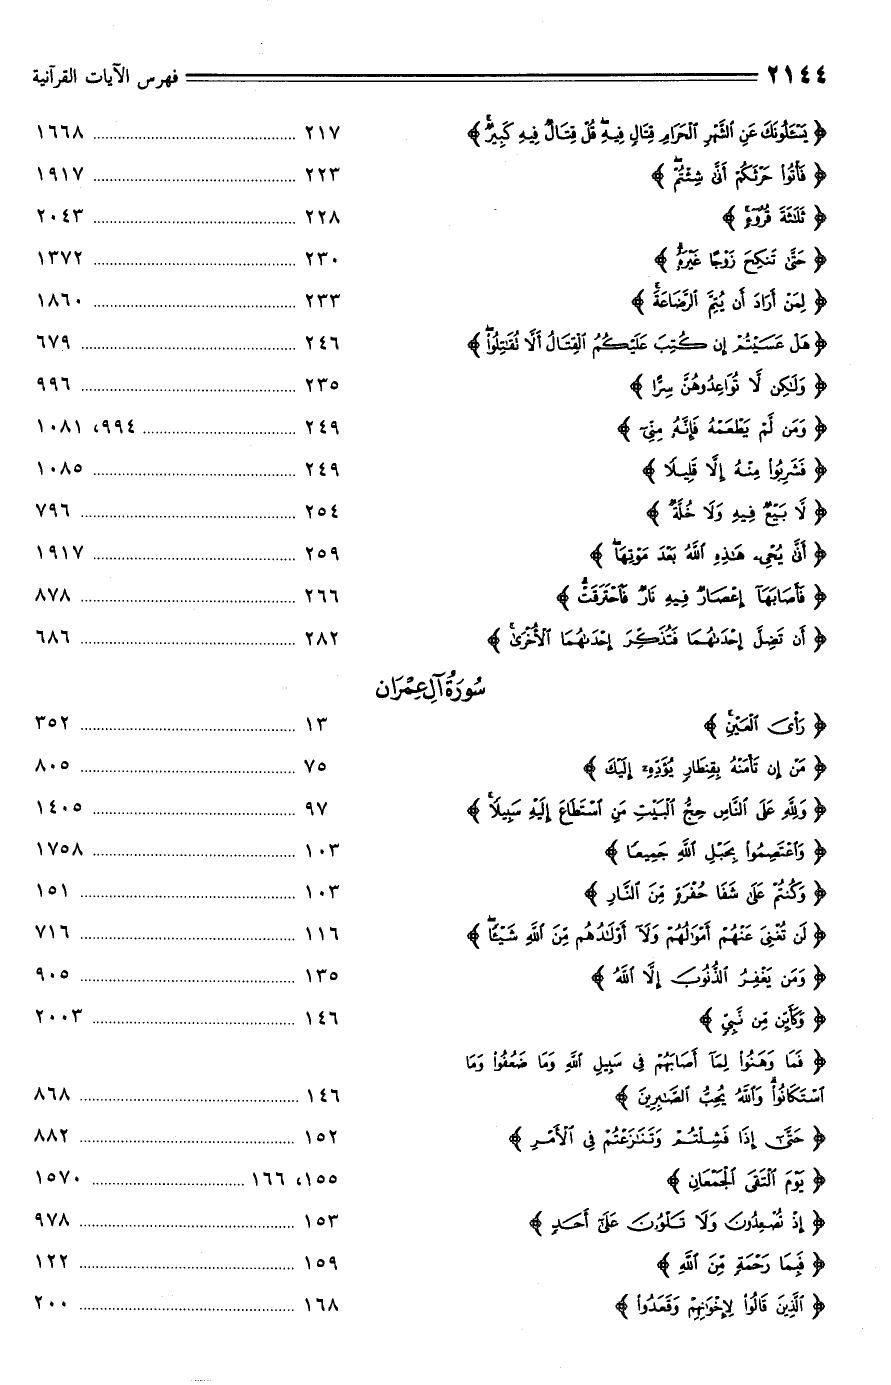 ٢١٤٤ فهرس الآيات القرآنية
﴿ يَسْـَٔلُونَكَ عَنِ ٱلشَّهْرِ ٱلْحَرَامِ قِتَالٍ فِيهِۖ قُلْ قِتَالٌ فِيهِ كَبِيرٌۚ ﴾ ٢١٧ ........ ١٦٦٨
﴿ فَأْتُوا۟ حَرْثَكُمْ أَنَّىٰ شِئْتُمْۖ ﴾ ٢٢٣ ........ ١٩١٧
﴿ ثَلَـٰثَةَ قُرُوٓءٍۚ ﴾ ٢٢٨ ........ ٢٠٤٣
﴿ حَتَّىٰ تَنكِحَ زَوْجًا غَيْرَهُۥۗ ﴾ ٢٣٠ ........ ١٣٧٢
﴿ لِمَنْ أَرَادَ أَن يُتِمَّ ٱلرَّضَاعَةَۚ ﴾ ٢٣٣ ........ ١٨٦٠
﴿ هَلْ عَسَيْتُمْ إِن كُتِبَ عَلَيْكُمُ ٱلْقِتَالُ أَلَّا تُقَـٰتِلُوا۟ۖ ﴾ ٢٤٦ ........ ٦٧٩
﴿ وَلَـٰكِن لَّا تُوَاعِدُوهُنَّ سِرًّا ﴾ ٢٣٥ ........ ٩٩٦
﴿ وَمَن لَّمْ يَطْعَمْهُ فَإِنَّهُۥ مِنِّىٓ ﴾ ٢٤٩ ........ ٩٩٤، ١٠٨١
﴿ فَشَرِبُوا۟ مِنْهُ إِلَّا قَلِيلًا ﴾ ٢٤٩ ........ ١٠٨٥
﴿ لَّا بَيْعٌ فِيهِ وَلَا خُلَّةٌ ﴾ ٢٥٤ ........ ٧٩٦
﴿ أَنَّىٰ يُحْىِۦ هَـٰذِهِ ٱللَّهُ بَعْدَ مَوْتِهَاۖ ﴾ ٢٥٩ ........ ١٩١٧
﴿ فَأَصَابَهَآ إِعْصَارٌ فِيهِ نَارٌ فَٱحْتَرَقَتْۗ ﴾ ٢٦٦ ........ ٨٧٨
﴿ أَن تَضِلَّ إِحْدَىٰهُمَا فَتُذَكِّرَ إِحْدَىٰهُمَا ٱلْأُخْرَىٰۚ ﴾ ٢٨٢ ........ ٦٨٦
سُورَةُ آلِ عِمْرَان
﴿ رَأْىَ ٱلْعَيْنِۚ ﴾ ١٣ ........ ٣٥٢
﴿ مَنْ إِن تَأْمَنْهُ بِقِنطَارٍ يُؤَدِّهِۦٓ إِلَيْكَ ﴾ ٧٥ ........ ٨٠٥
﴿ وَلِلَّهِ عَلَى ٱلنَّاسِ حِجُّ ٱلْبَيْتِ مَنِ ٱسْتَطَاعَ إِلَيْهِ سَبِيلًاۚ ﴾ ٩٧ ........ ١٤٠٥
﴿ وَٱعْتَصِمُوا۟ بِحَبْلِ ٱللَّهِ جَمِيعًا ﴾ ١٠٣ ........ ١٧٥٨
﴿ وَكُنتُمْ عَلَىٰ شَفَا حُفْرَةٍ مِّنَ ٱلنَّارِ ﴾ ١٠٣ ........ ١٥١
﴿ لَن تُغْنِىَ عَنْهُمْ أَمْوَٰلُهُمْ وَلَآ أَوْلَـٰدُهُم مِّنَ ٱللَّهِ شَيْـًٔاۖ ﴾ ١١٦ ........ ٧١٦
﴿ وَمَن يَغْفِرُ ٱلذُّنُوبَ إِلَّا ٱللَّهُ ﴾ ١٣٥ ........ ٩٠٥
﴿ وَكَأَيِّن مِّن نَّبِىٍّ ﴾ ١٤٦ ........ ٢٠٠٣
﴿ فَمَا وَهَنُوا۟ لِمَآ أَصَابَهُمْ فِى سَبِيلِ ٱللَّهِ وَمَا ضَعُفُوا۟ وَمَا
ٱسْتَكَانُوا۟ۗ وَٱللَّهُ يُحِبُّ ٱلصَّـٰبِرِينَ ﴾ ١٤٦ ........ ٨٦٨
﴿ حَتَّىٰٓ إِذَا فَشِلْتُمْ وَتَنَـٰزَعْتُمْ فِى ٱلْأَمْرِ ﴾ ١٥٢ ........ ٨٨٢
﴿ يَوْمَ ٱلْتَقَى ٱلْجَمْعَانِ ﴾ ١٥٥، ١٦٦ ........ ١٥٧٠
﴿ إِذْ تُصْعِدُونَ وَلَا تَلْوُۥنَ عَلَىٰٓ أَحَدٍ ﴾ ١٥٣ ........ ٩٧٨
﴿ فَبِمَا رَحْمَةٍ مِّنَ ٱللَّهِ ﴾ ١٥٩ ........ ١٢٢
﴿ ٱلَّذِينَ قَالُوا۟ لِإِخْوَٰنِهِمْ وَقَعَدُوا۟ ﴾ ١٦٨ ........ ٢٠٠